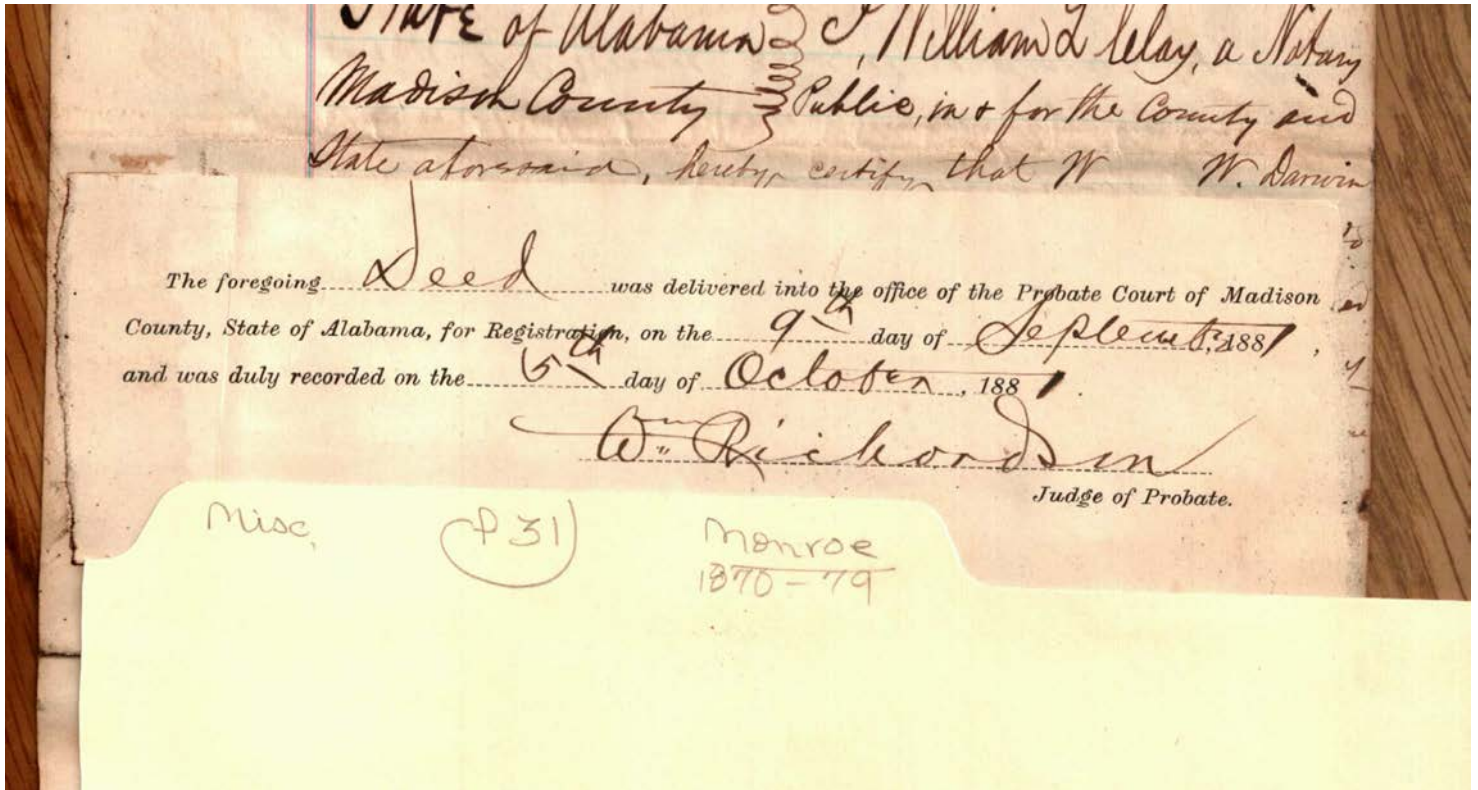 State of Alabama } I, William L Clay, a Notary
Madison County } Public, in & for the County and
State aforesaid, hereby certify that W W. Darwin
The foregoing Deed was delivered into the office of the Probate Court of Madison
County, State of Alabama, for Registration, on the 9th day of September, 1881,
and was duly recorded on the 5th day of October, 1881.
Wm Richardson
Judge of Probate.
Misc. P31 Monroe
1870-79